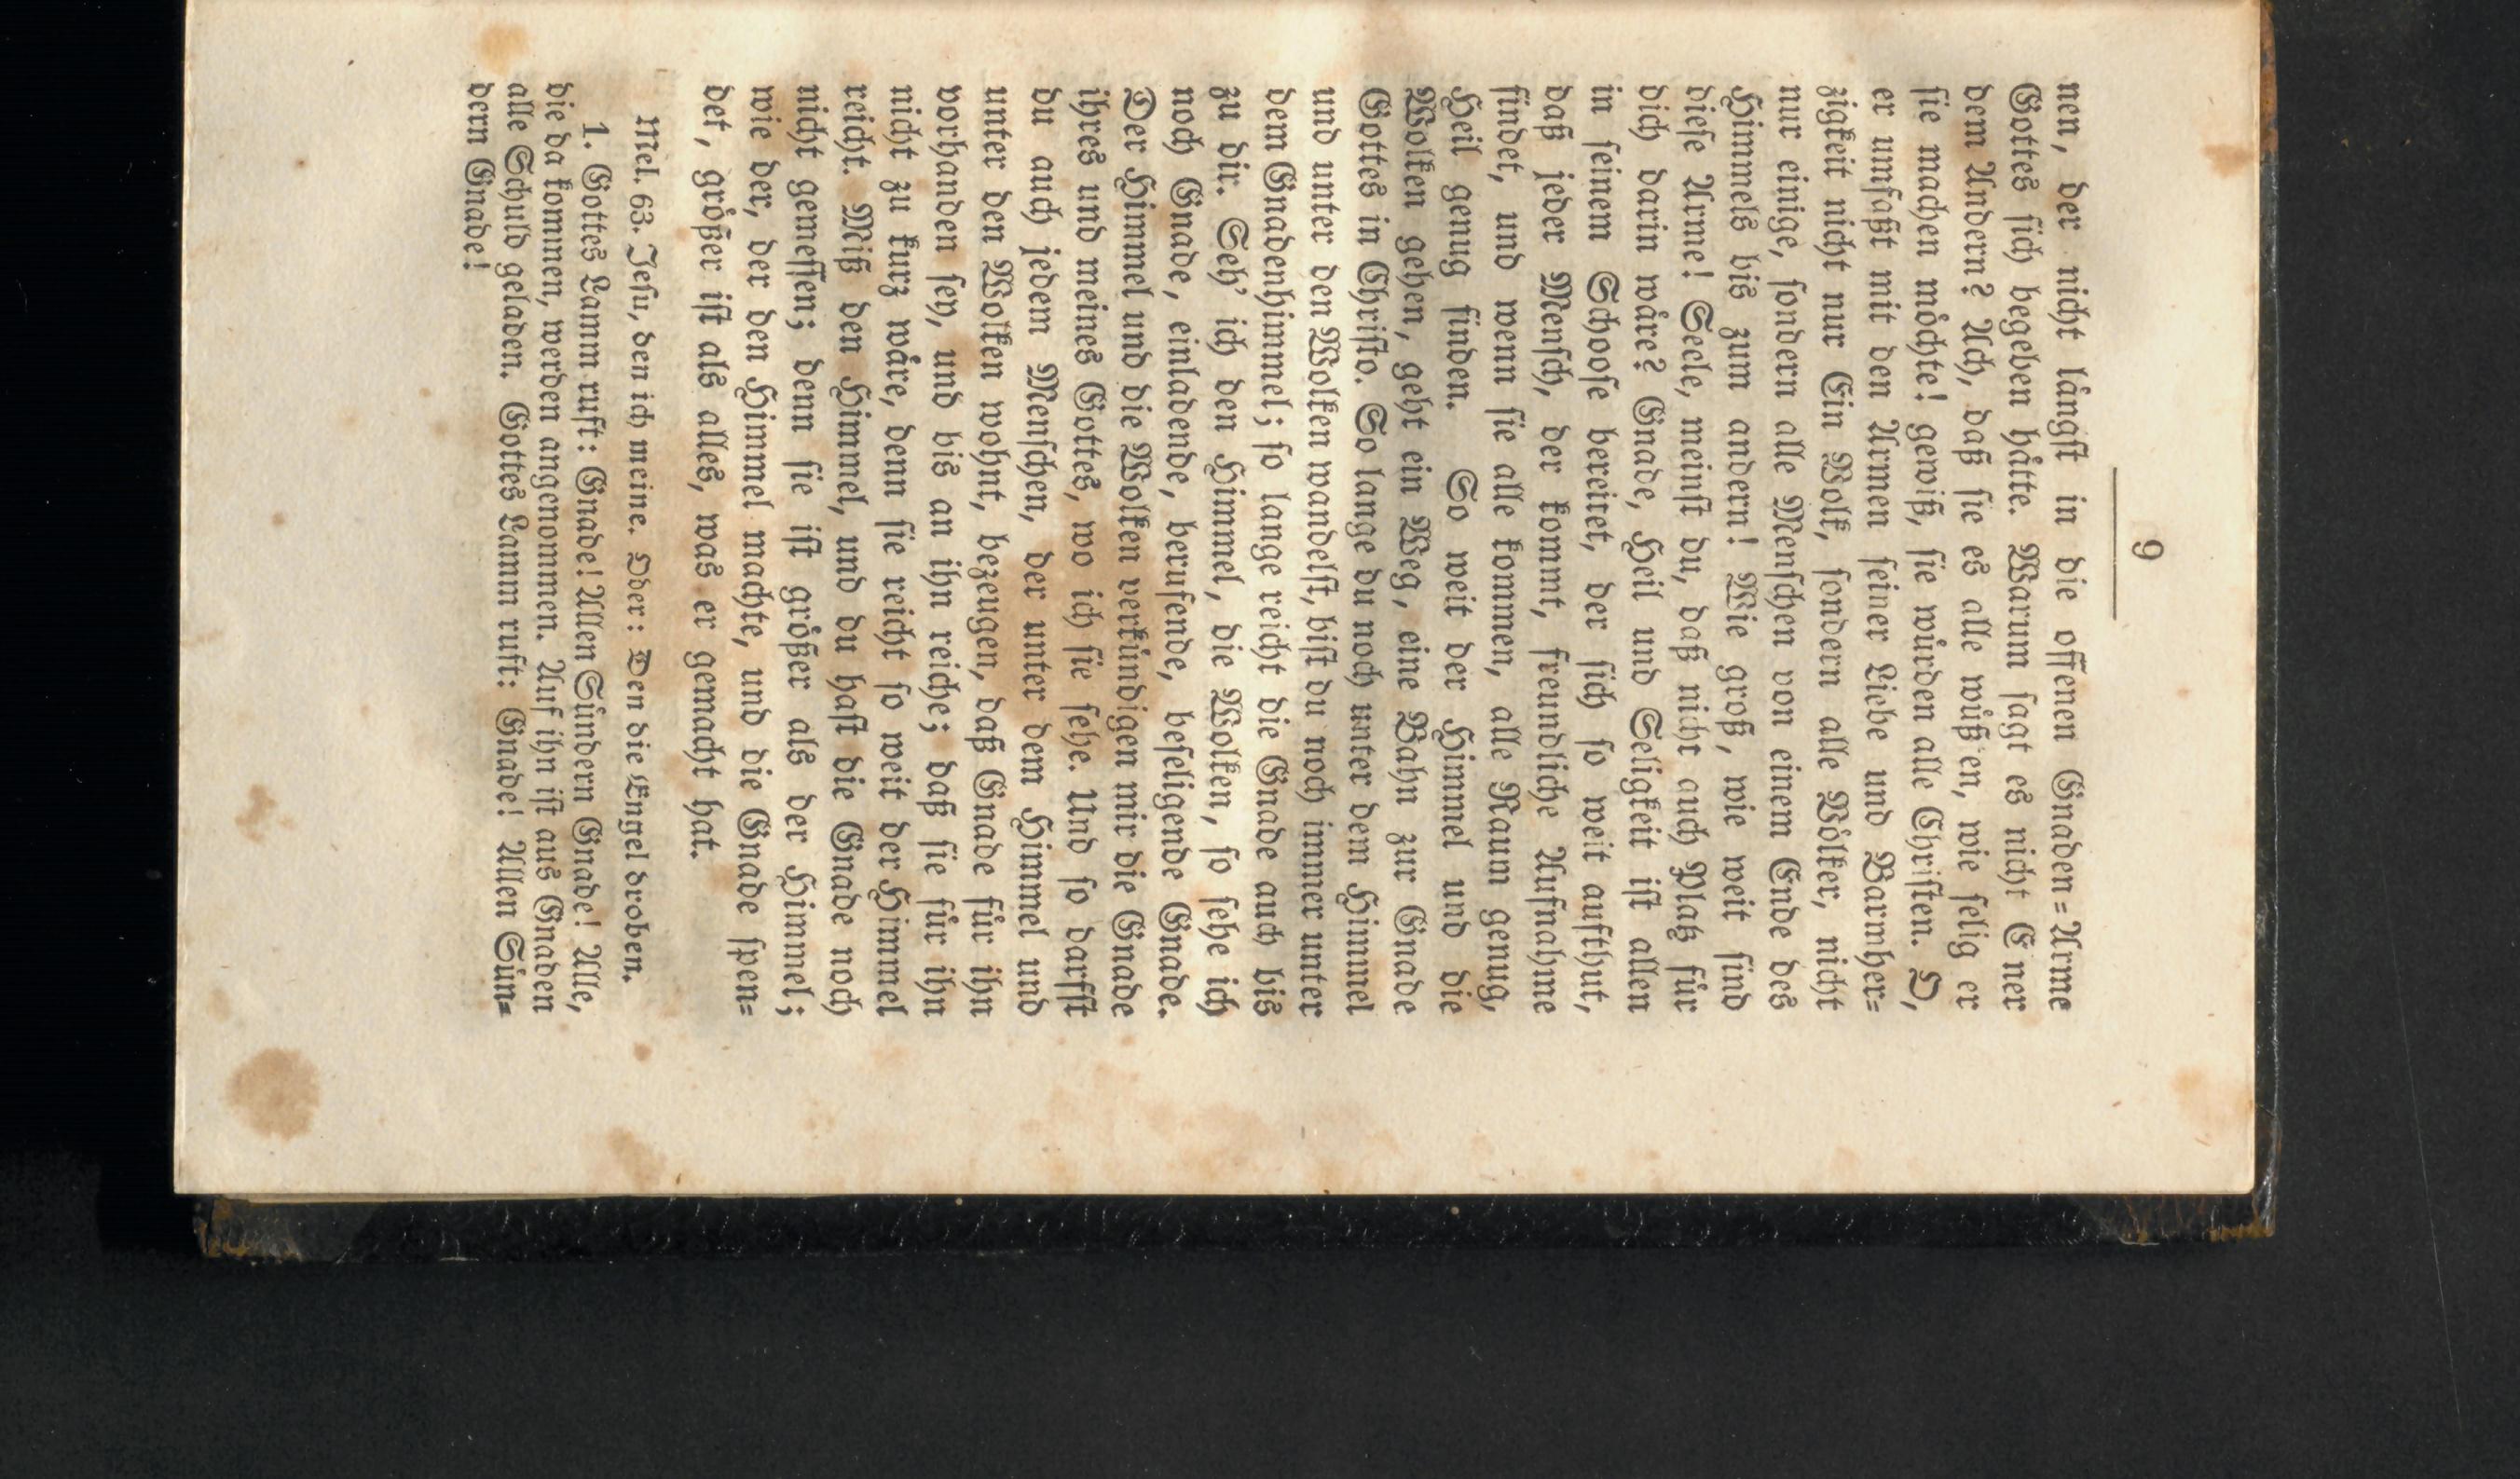 9
nen, der nicht längst in die offenen Gnaden=Arme
Gottes sich begeben hätte. Warum sagt es nicht E ner
dem Andern? Ach, daß sie es alle wüß en, wie selig er
sie machen möchte! gewiß, sie würden alle Christen. O,
er umfaßt mit den Armen seiner Liebe und Barmher=
zigkeit nicht nur Ein Volk, sondern alle Völker, nicht
nur einige, sondern alle Menschen von einem Ende des
Himmels bis zum andern! Wie groß, wie weit sind
diese Arme! Seele, meinst du, daß nicht auch Platz für
dich darin wäre? Gnade, Heil und Seligkeit ist allen
in seinem Schoose bereitet, der sich so weit aufthut,
daß jeder Mensch, der kommt, freundliche Aufnahme
findet, und wenn sie alle kommen, alle Raum genug,
Heil genug finden. So weit der Himmel und die
Wolken gehen, geht ein Weg, eine Bahn zur Gnade
Gottes in Christo. So lange du noch unter dem Himmel
und unter den Wolken wandelst, bist du noch immer unter
dem Gnadenhimmel; so lange reicht die Gnade auch bis
zu dir. Seh' ich den Himmel, die Wolken, so sehe ich
noch Gnade, einladende, berufende, beseligende Gnade.
Der Himmel und die Wolken verkündigen mir die Gnade
ihres und meines Gottes, wo ich sie sehe. Und so darfst
du auch jedem Menschen, der unter dem Himmel und
unter den Wolken wohnt, bezeugen, daß Gnade für ihn
vorhanden sey, und bis an ihn reiche; daß sie für ihn
nicht zu kurz wäre, denn sie reicht so weit der Himmel
reicht. Miß den Himmel, und du hast die Gnade noch
nicht gemessen; denn sie ist größer als der Himmel;
wie der, der den Himmel machte, und die Gnade spen=
det, größer ist als alles, was er gemacht hat.
Mel. 63. Jesu, den ich meine. Oder: Den die Engel droben.
1. Gottes Lamm ruft: Gnade! Allen Sündern Gnade! Alle,
die da kommen, werden angenommen. Auf ihn ist aus Gnaden
alle Schuld geladen. Gottes Lamm ruft: Gnade! Allen Sün=
dern Gnade!